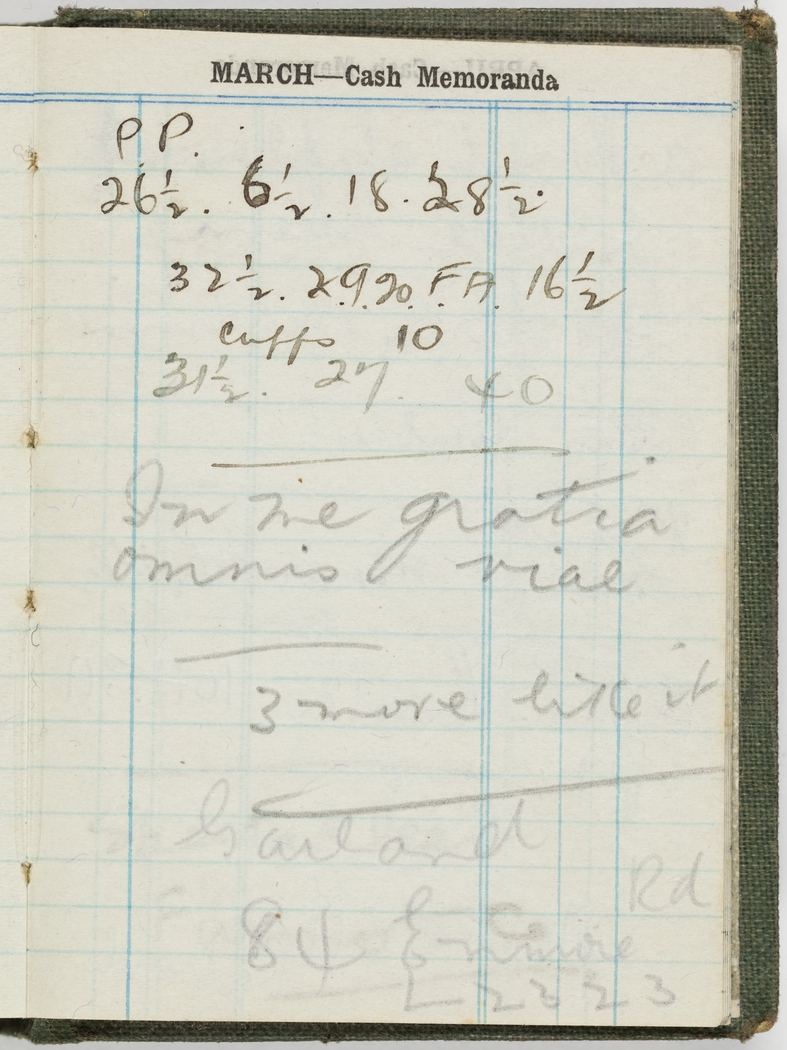 MARCH—Cash Memoranda
P.P.
26½. 6½. 18. 28½.
32½. 29.20. F.A. 16½
cuffs 10
31½. 27. 40
In me gratia
omnis viae
3 more like it
Garland
Rd
84 Enmore
L 2323